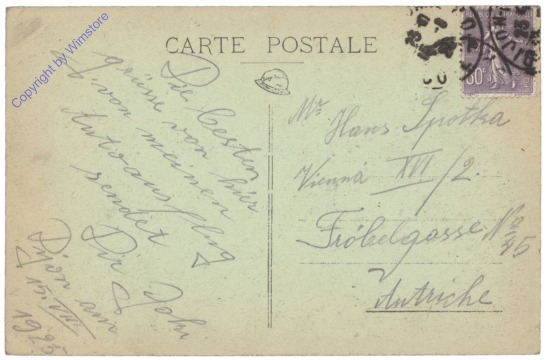 Copyright by Wimstore
CARTE POSTALE
60
Die besten
grüsse von hier
von meinen
Autoausflug
sendet
Dir
Dijon am
15. VII.
1925
Mr
Hans Spotka
Vienna XVI/2.
Fröbelgasse No
Autriche